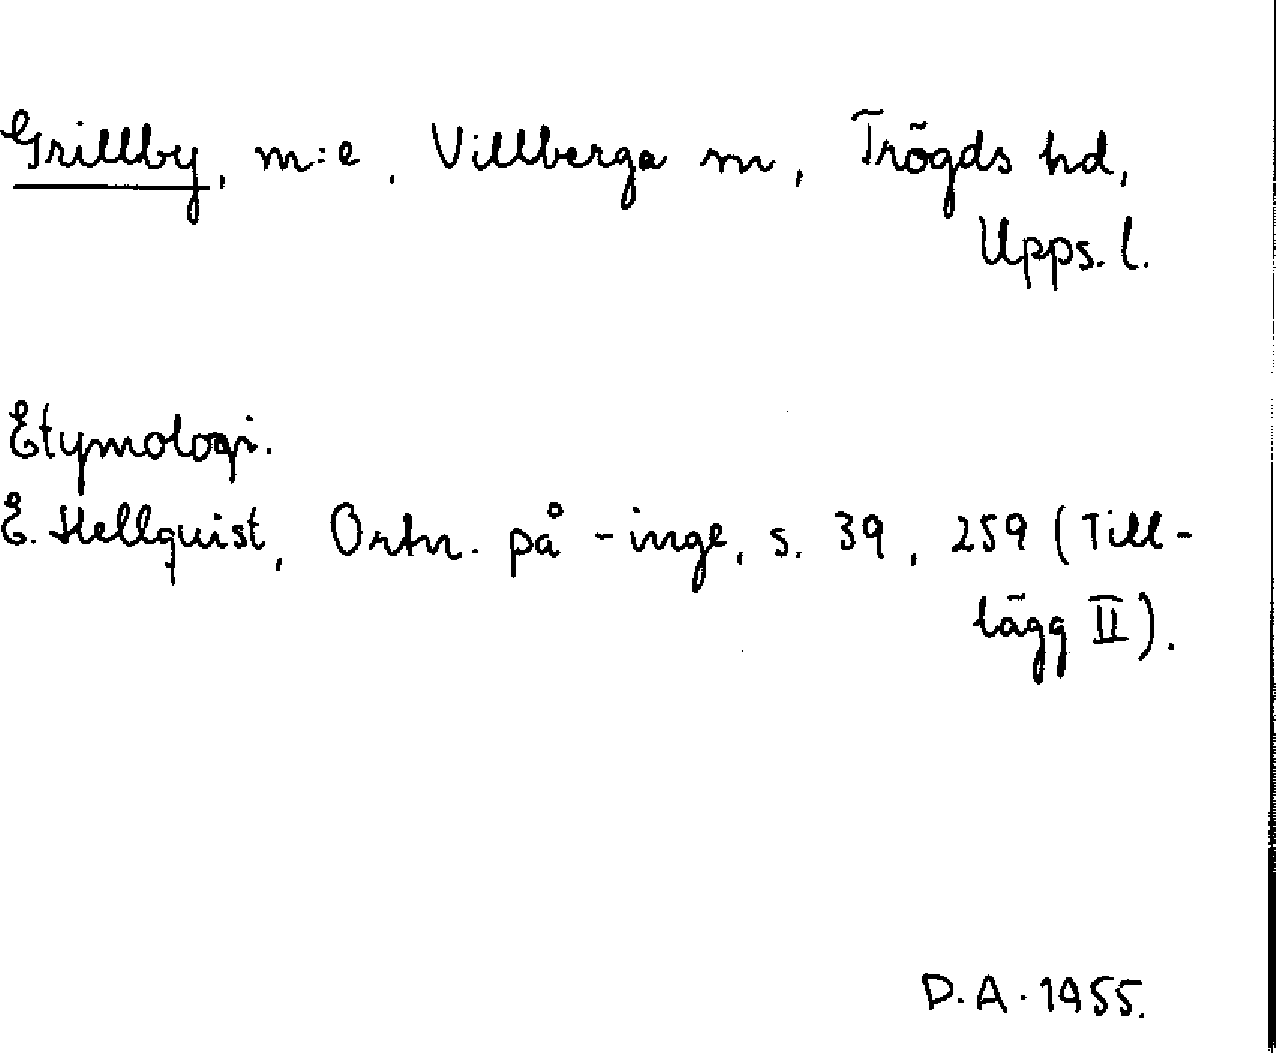 Grillby, m:e, Villberga m, Trögds hd,
Upps. l.
Etymologi.
E. Hellquist, Ortn. på -inge, s. 39, 259 (Till-
lägg II).
D.A. 1955.